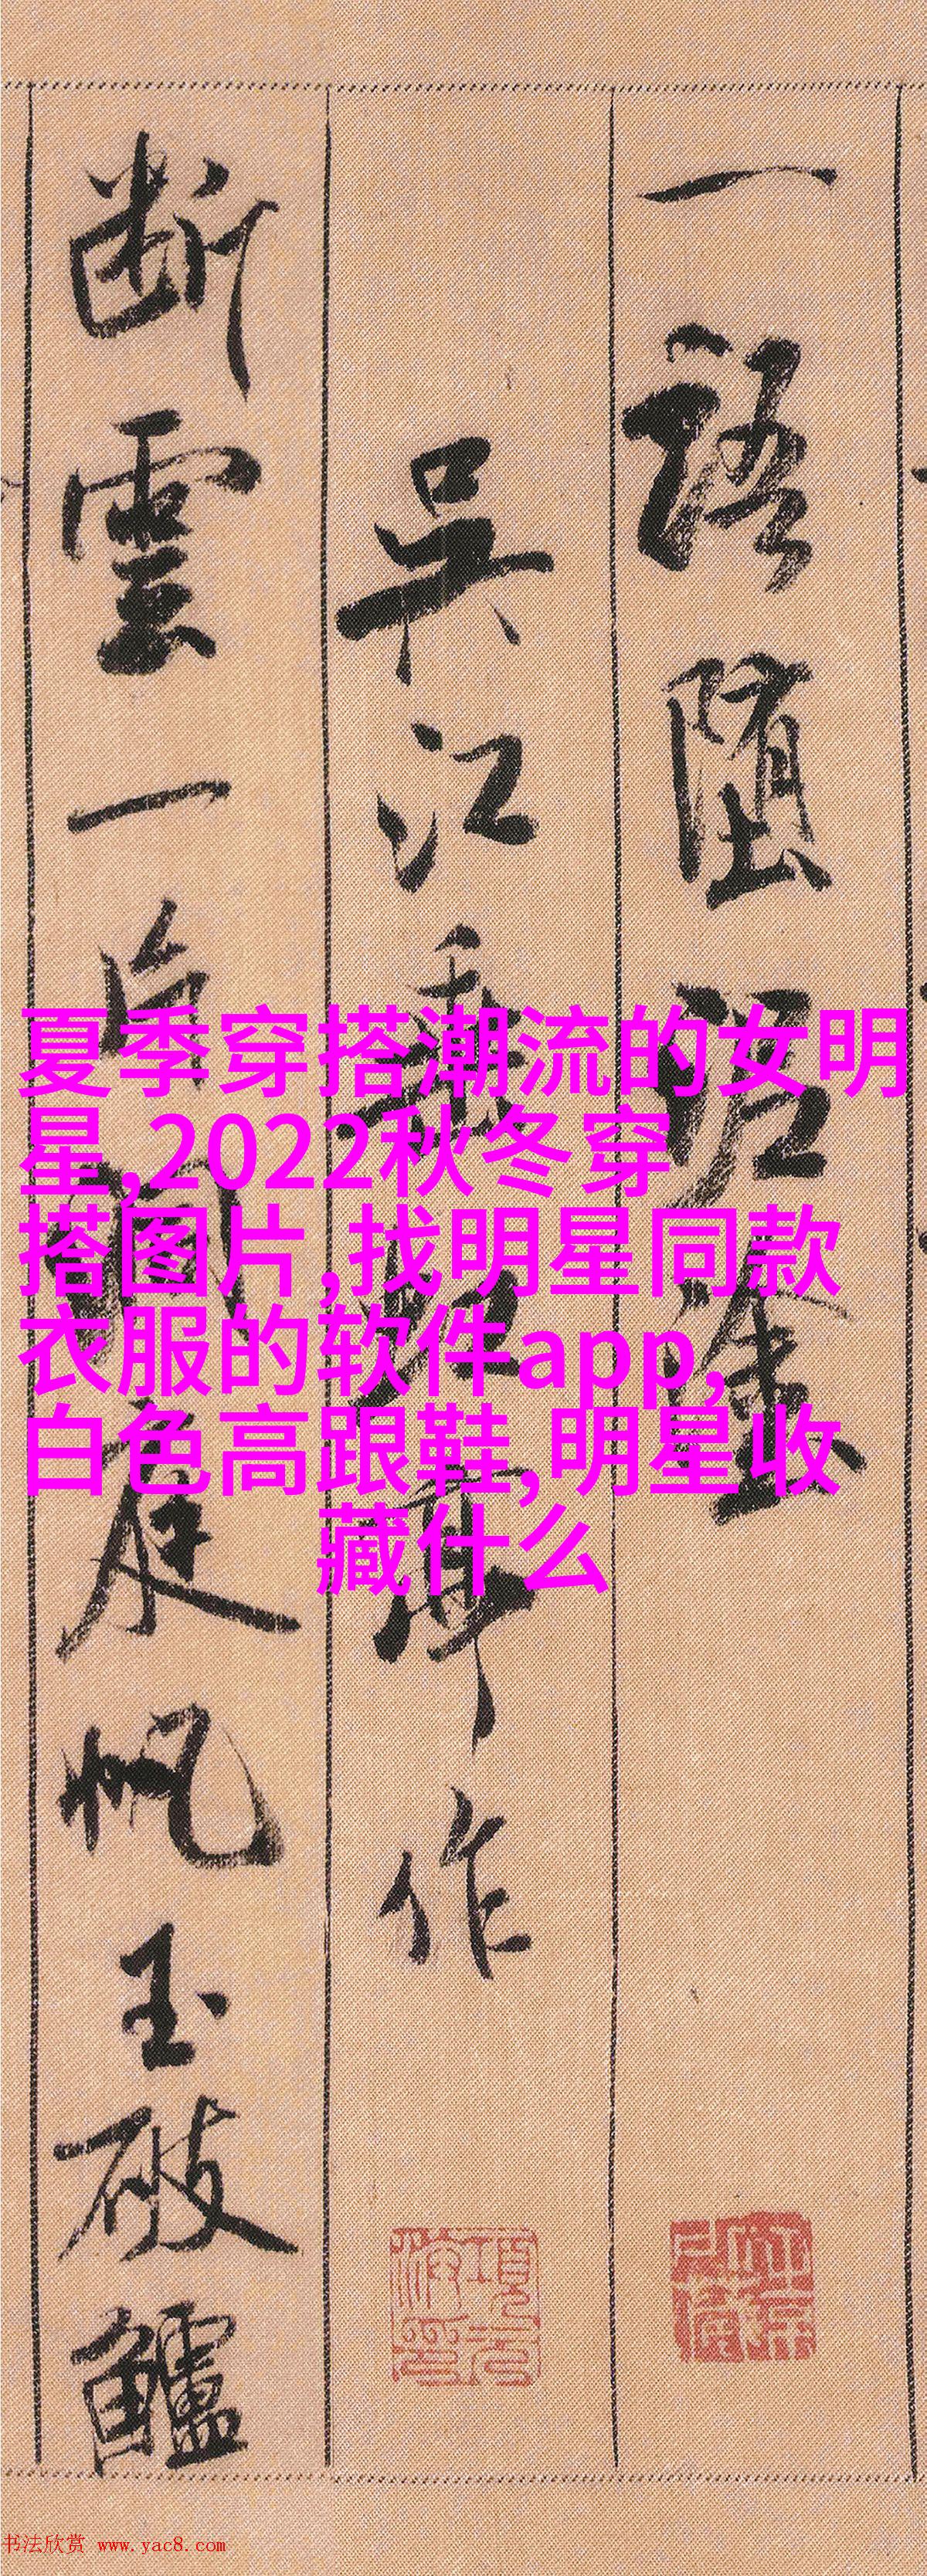 一語墮泥塗
吳江垂虹亭作
斷雲一片洞庭帆玉破鱸
夏季穿搭潮流的女明
星,2022秋冬穿
搭图片,找明星同款
衣服的软件app,
白色高跟鞋,明星收
藏什么
书法欣赏 www.yac8.com